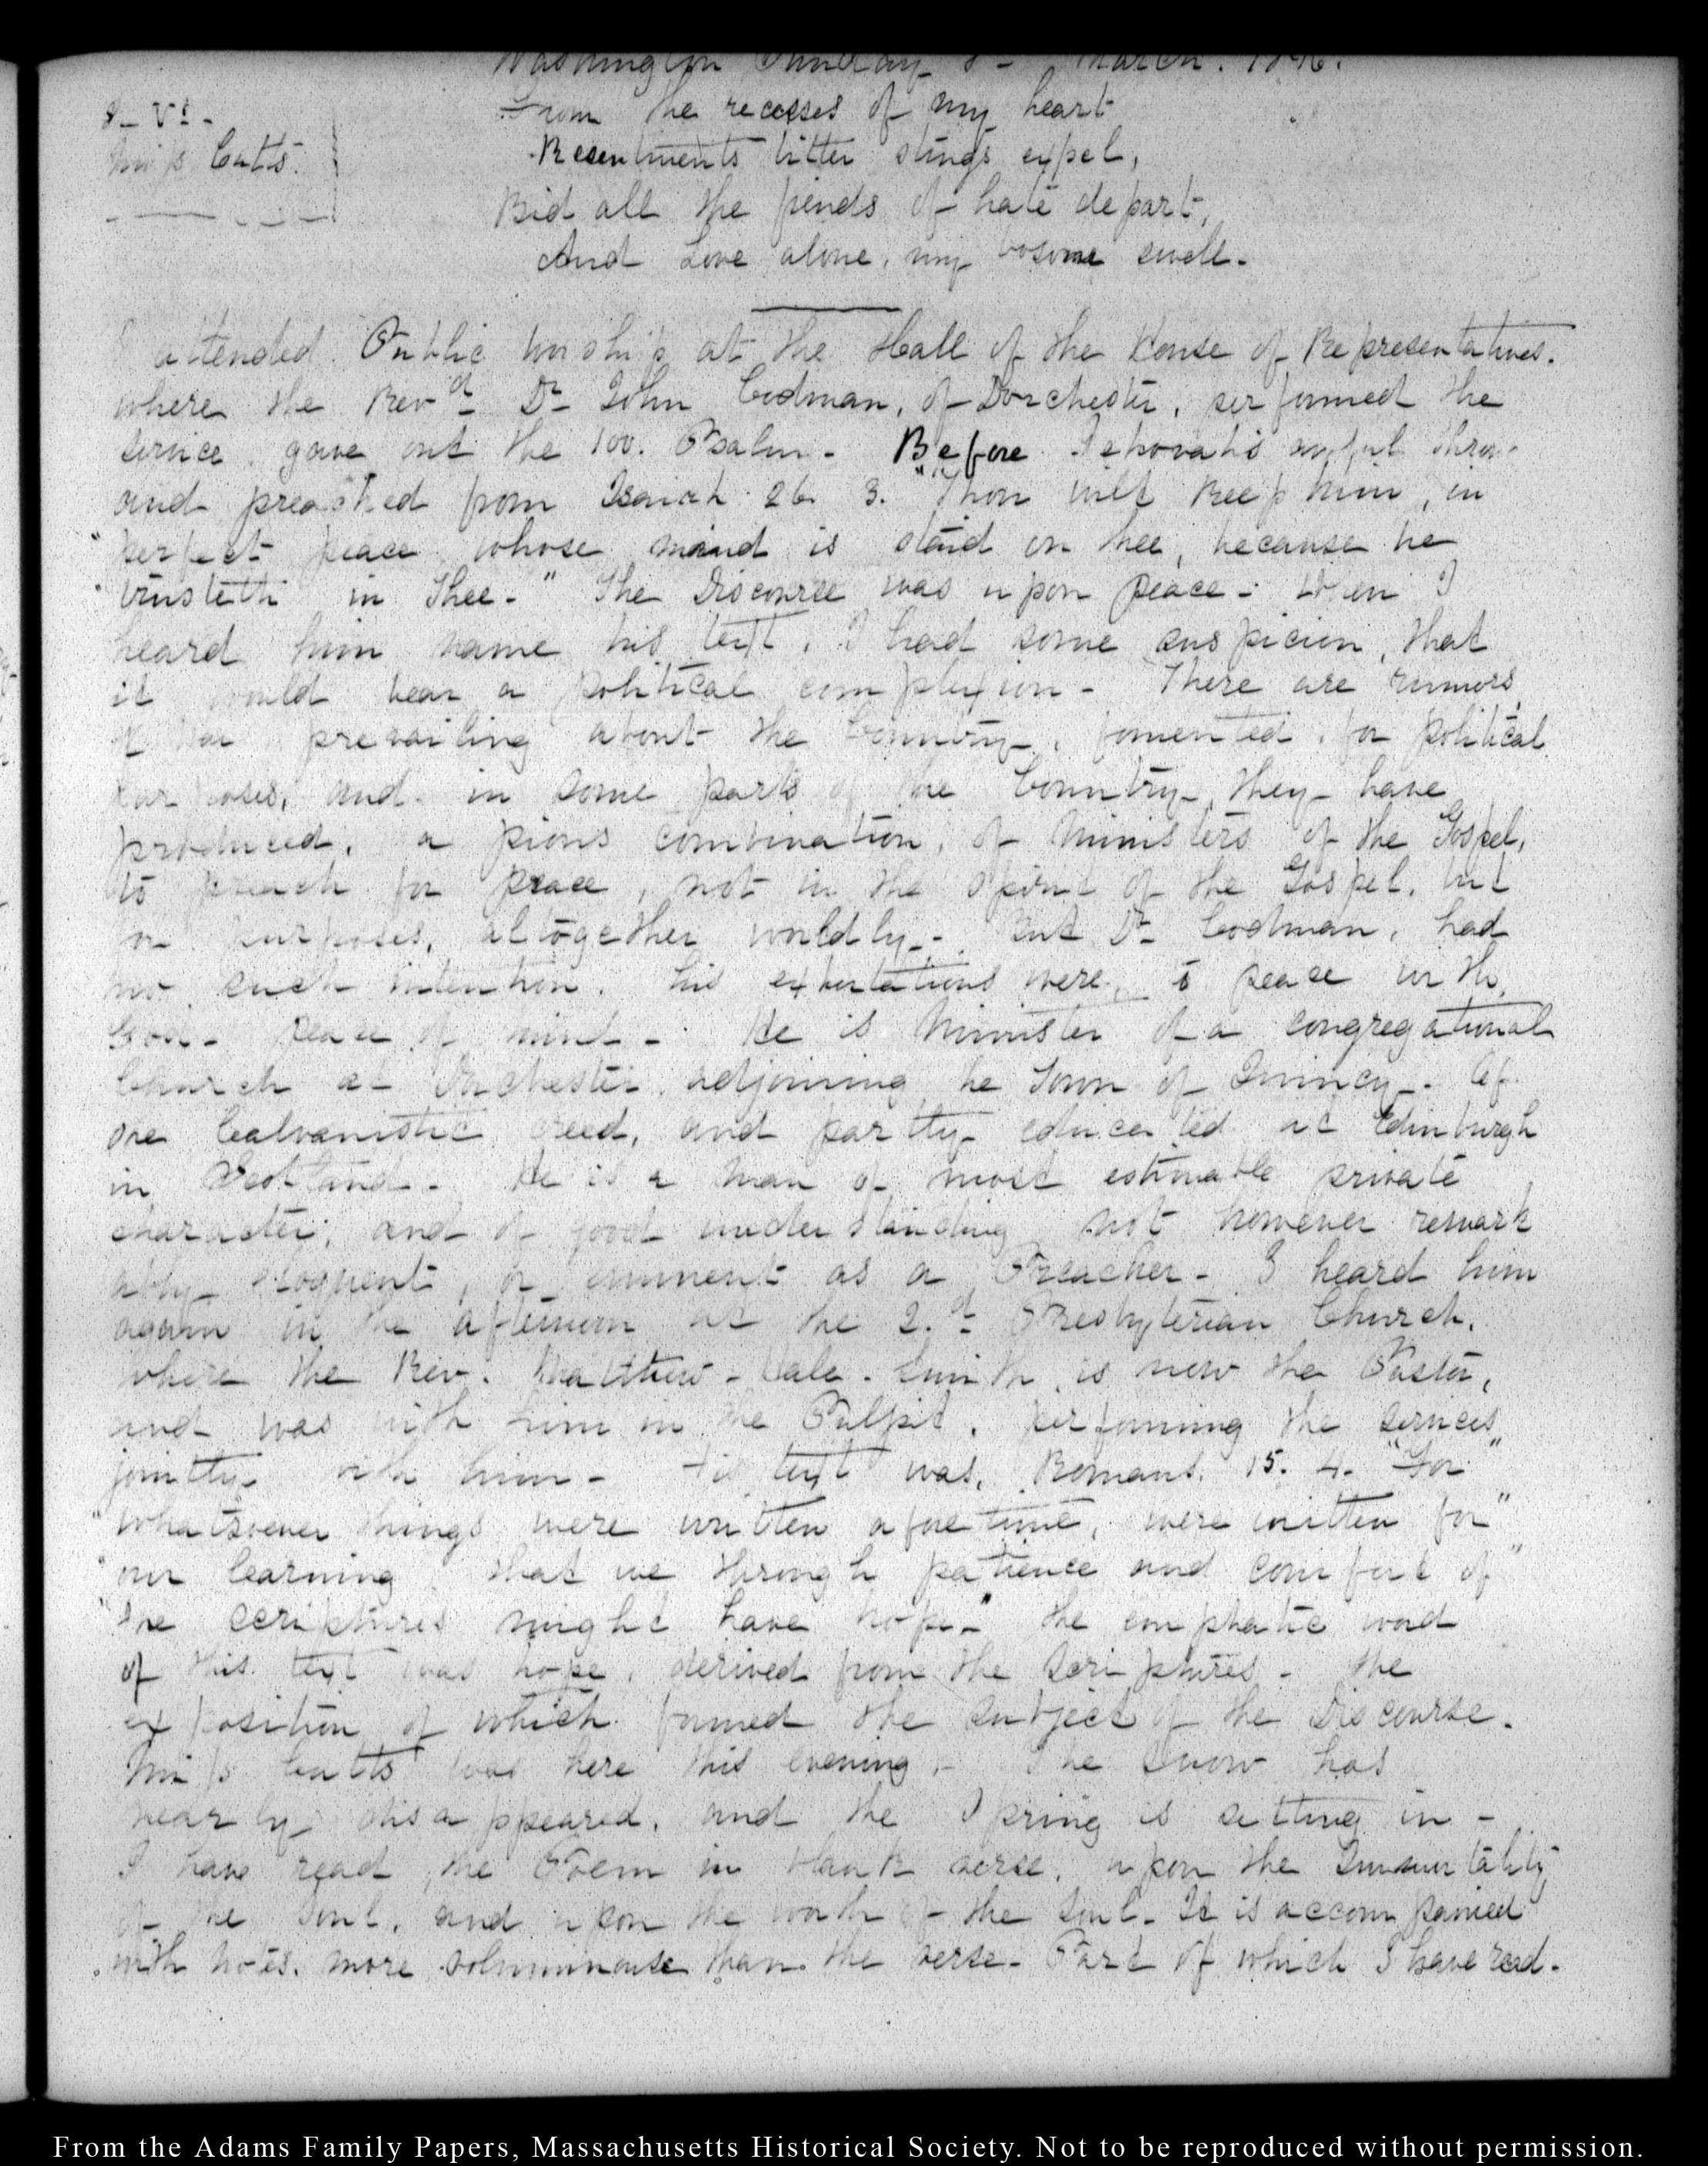 Washington Sunday 8- March. 1846.
8_ VI-
Miss Cutts.
From the recesses of my heart
Resentments bitter stings expel,
Bid all the fiends of hate depart,
And Love alone, my bosom swell-
I attended Public worship at the Hall of the House of Representatives.
where the Revd. Dr John Codman, of Dorchester, performed the
service, gave out the 100. Psalm- Before Jehovah's awful throne
and preached from Isaiah 26. 3. "Thou wilt keep him, in
"perfect peace whose mind is staid on thee, because he
"trusteth in Thee-" The Discourse was upon peace- When I
heard him name his text, I had some suspicion, that
it would bear a political complexion- There are rumors
of war prevailing about the Country, fomented, for political
purposes, and in some parts of the Country, they have
produced, a pious combination, of Ministers of the Gospel,
to preach for peace, not in the spirit of the Gospel, but
for purposes, altogether worldly- But Dr Codman, had
no such intention. his exhortations were, to peace with
God- Peace of mind- He is Minister of a congregational
Church at Dorchester, adjoining the Town of Quincy- Of
the Calvanistic creed, and partly educated at Edinburgh
in Scotland- He is a man of most estimable private
character, and of good understanding not however remark
ably eloquent, or eminent as a Preacher- I heard him
again in the afternoon at the 2.d Presbyterian Church,
where the Rev. Matthew-Hale-Smith, is now the Pastor,
and was with him in the Pulpit, performing the services
jointly with him- His text was, Romans. 15. 4. "For"
"whatsoever things were written aforetime, were written for"
"our learning that we through patience and comfort of"
"the scriptures might have hope-" the emphatic word
of this text was hope, derived from the Scriptures- the
exposition of which formed the subject of the Discourse.
Miss Cutts was here this evening,- The snow has
nearly disappeared, and the Spring is setting in-
I have read, the Poem in blank verse, upon the Immortality
of the Soul, and upon the worth of the Soul- It is accompanied
with notes, more voluminouse than the verse- Part of which I have read-
From the Adams Family Papers, Massachusetts Historical Society. Not to be reproduced without permission.